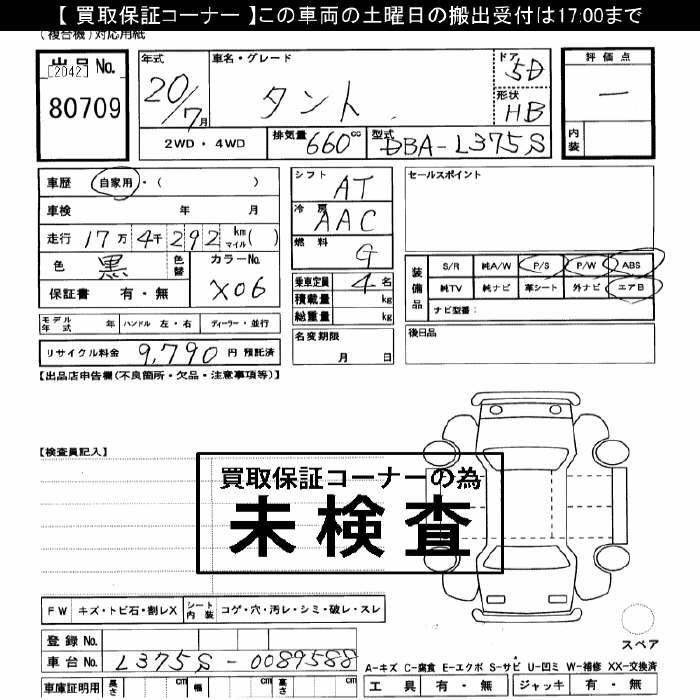 【 買取保証コーナー 】この車両の土曜日の搬出受付は17:00まで
(複合機)対応用紙
出品No.
[2042]
80709
年式
20/7月
車名・グレード
タント
ドア
5D
形状
HB
評価点
一
内装
2WD・4WD
排気量 660cc
型式 DBA-L375S
車歴 自家用・( )
車検 年 月
走行 17万 4千 292 km マイル( )
色 黒 色替
カラーNo.
X06
保証書 有・無
シフト AT
冷房 AAC
燃料 G
乗車定員 4 名
積載量 kg
総重量 kg
セールスポイント
装備品
S/R 純A/W P/S P/W ABS
純TV 純ナビ 革シート 外ナビ エアB
ナビ型番:
モデル年式 年 ハンドル 左・右 ディーラー・並行
名変期限
月 日
後日品
リサイクル料金 9,790 円 預託済
【出品店申告欄(不良箇所・欠品・注意事項等)】
【検査員記入】
買取保証コーナーの為
未検査
FW キズ・トビ石・割レX シート内装 コゲ・穴・汚レ・シミ・破レ・スレ
スペア
登録No.
車台No. L375S-0089588
A-キズ C-腐食 E-エクボ S-サビ U-凹ミ W-補修 XX-交換済
車庫証明用 長さ cm 幅 cm 高さ cm
工具 有・無 ジャッキ 有・無